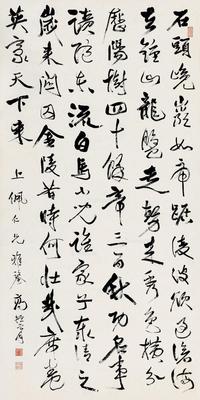 石頭巉巖如虎踞凌波欲過滄江
去鐘山龍盤走勢來秀色橫分
歷陽樹四十餘帝三百秋功名事
蹟隨東流白馬小兒誰家子泰清之
歲來關囚金陵昔時何壯哉席卷
英豪天下來 上佩仁兄雅鑒 高振霄